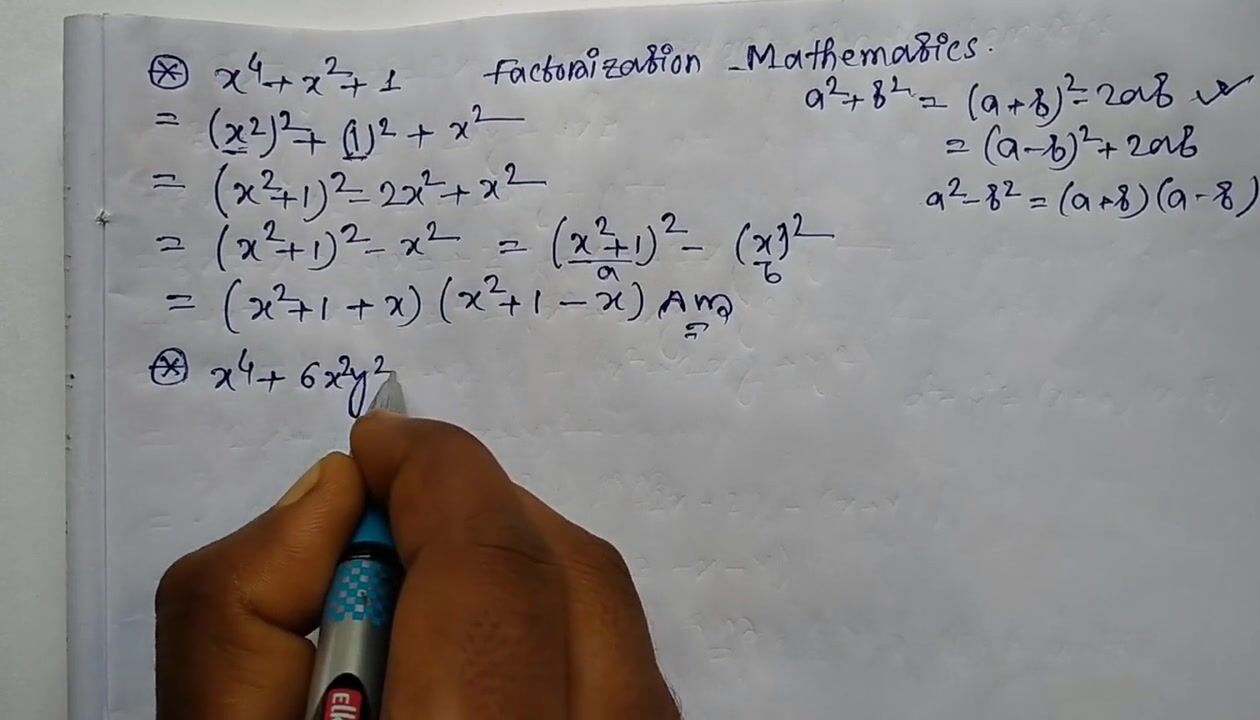 ⊛ x⁴ + x² + 1 Factorization Mathematics.
= (x²)² + (1)² + x²
= (x²+1)² - 2x² + x²
= (x²+1)² - x² = (x²+1)² - (x)²
a b
= (x²+1+x)(x²+1-x) Ans
⊛ x⁴ + 6x²y²
a² + b² = (a+b)² - 2ab ✓
= (a-b)² + 2ab
a² - b² = (a+b)(a-b)
elk